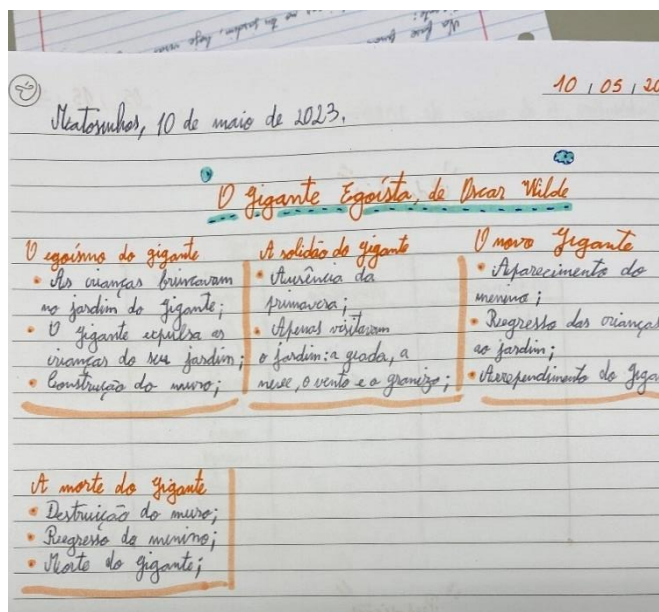 10 / 05 / 20
Matosinhos, 10 de maio de 2023.
O Gigante Egoísta, de Oscar Wilde
O egoísmo do gigante
• As crianças brincavam
no jardim do Gigante;
• O Gigante expulsa as
crianças do seu jardim;
• Construção do muro;
A solidão do gigante
• Ausência da
primavera;
• Apenas visitavam
o jardim: a geada, a
neve, o vento e o granizo;
O novo Gigante
• Aparecimento do
menino;
• Regresso das crianças
ao jardim;
• Arrependimento do Giga
A morte do gigante
• Destruição do muro;
• Regresso do menino;
• Morte do Gigante;